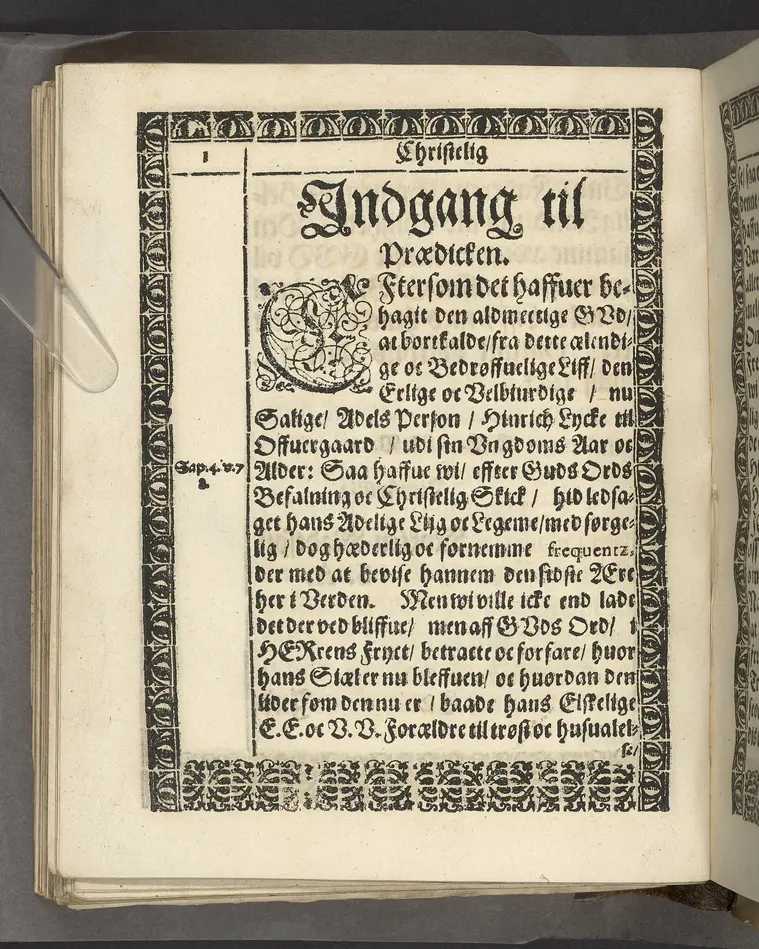 1
Christelig
Indgang til
Prædicken.
EFtersom det haffuer be-
hagit den aldmectige GVd/
at bortkalde/ fra dette ælendi-
ge oc Bedrøffuelige Liff/ den
Erlige oc Velbiurdige / nu
Salige/ Adels Person / Hinrich Lycke til
Offuergaard / udi sin Vngdoms Aar oc
Alder: Saa haffue wi/ effter Guds Ords
Sap. 4. v. 7
8.
Befalning oc Christelig Skick / hid ledsa-
get hans Adelige Liig oc Legeme/ med sørge-
lig / dog hæderlig oc fornemme frequentz,
der med at bevise hannem den sidste Ære
her i Verden. Men wi ville icke end lade
det der ved bliffue/ men aff GVds Ord/ i
HERrens Fryct/ betracte oc forfare/ huor
hans Siæl er nu bleffuen/ oc huordan den
lider som den nu er / baade hans Elskelige
E. E. oc V. V. Forældre til trøst oc husualel-
se/